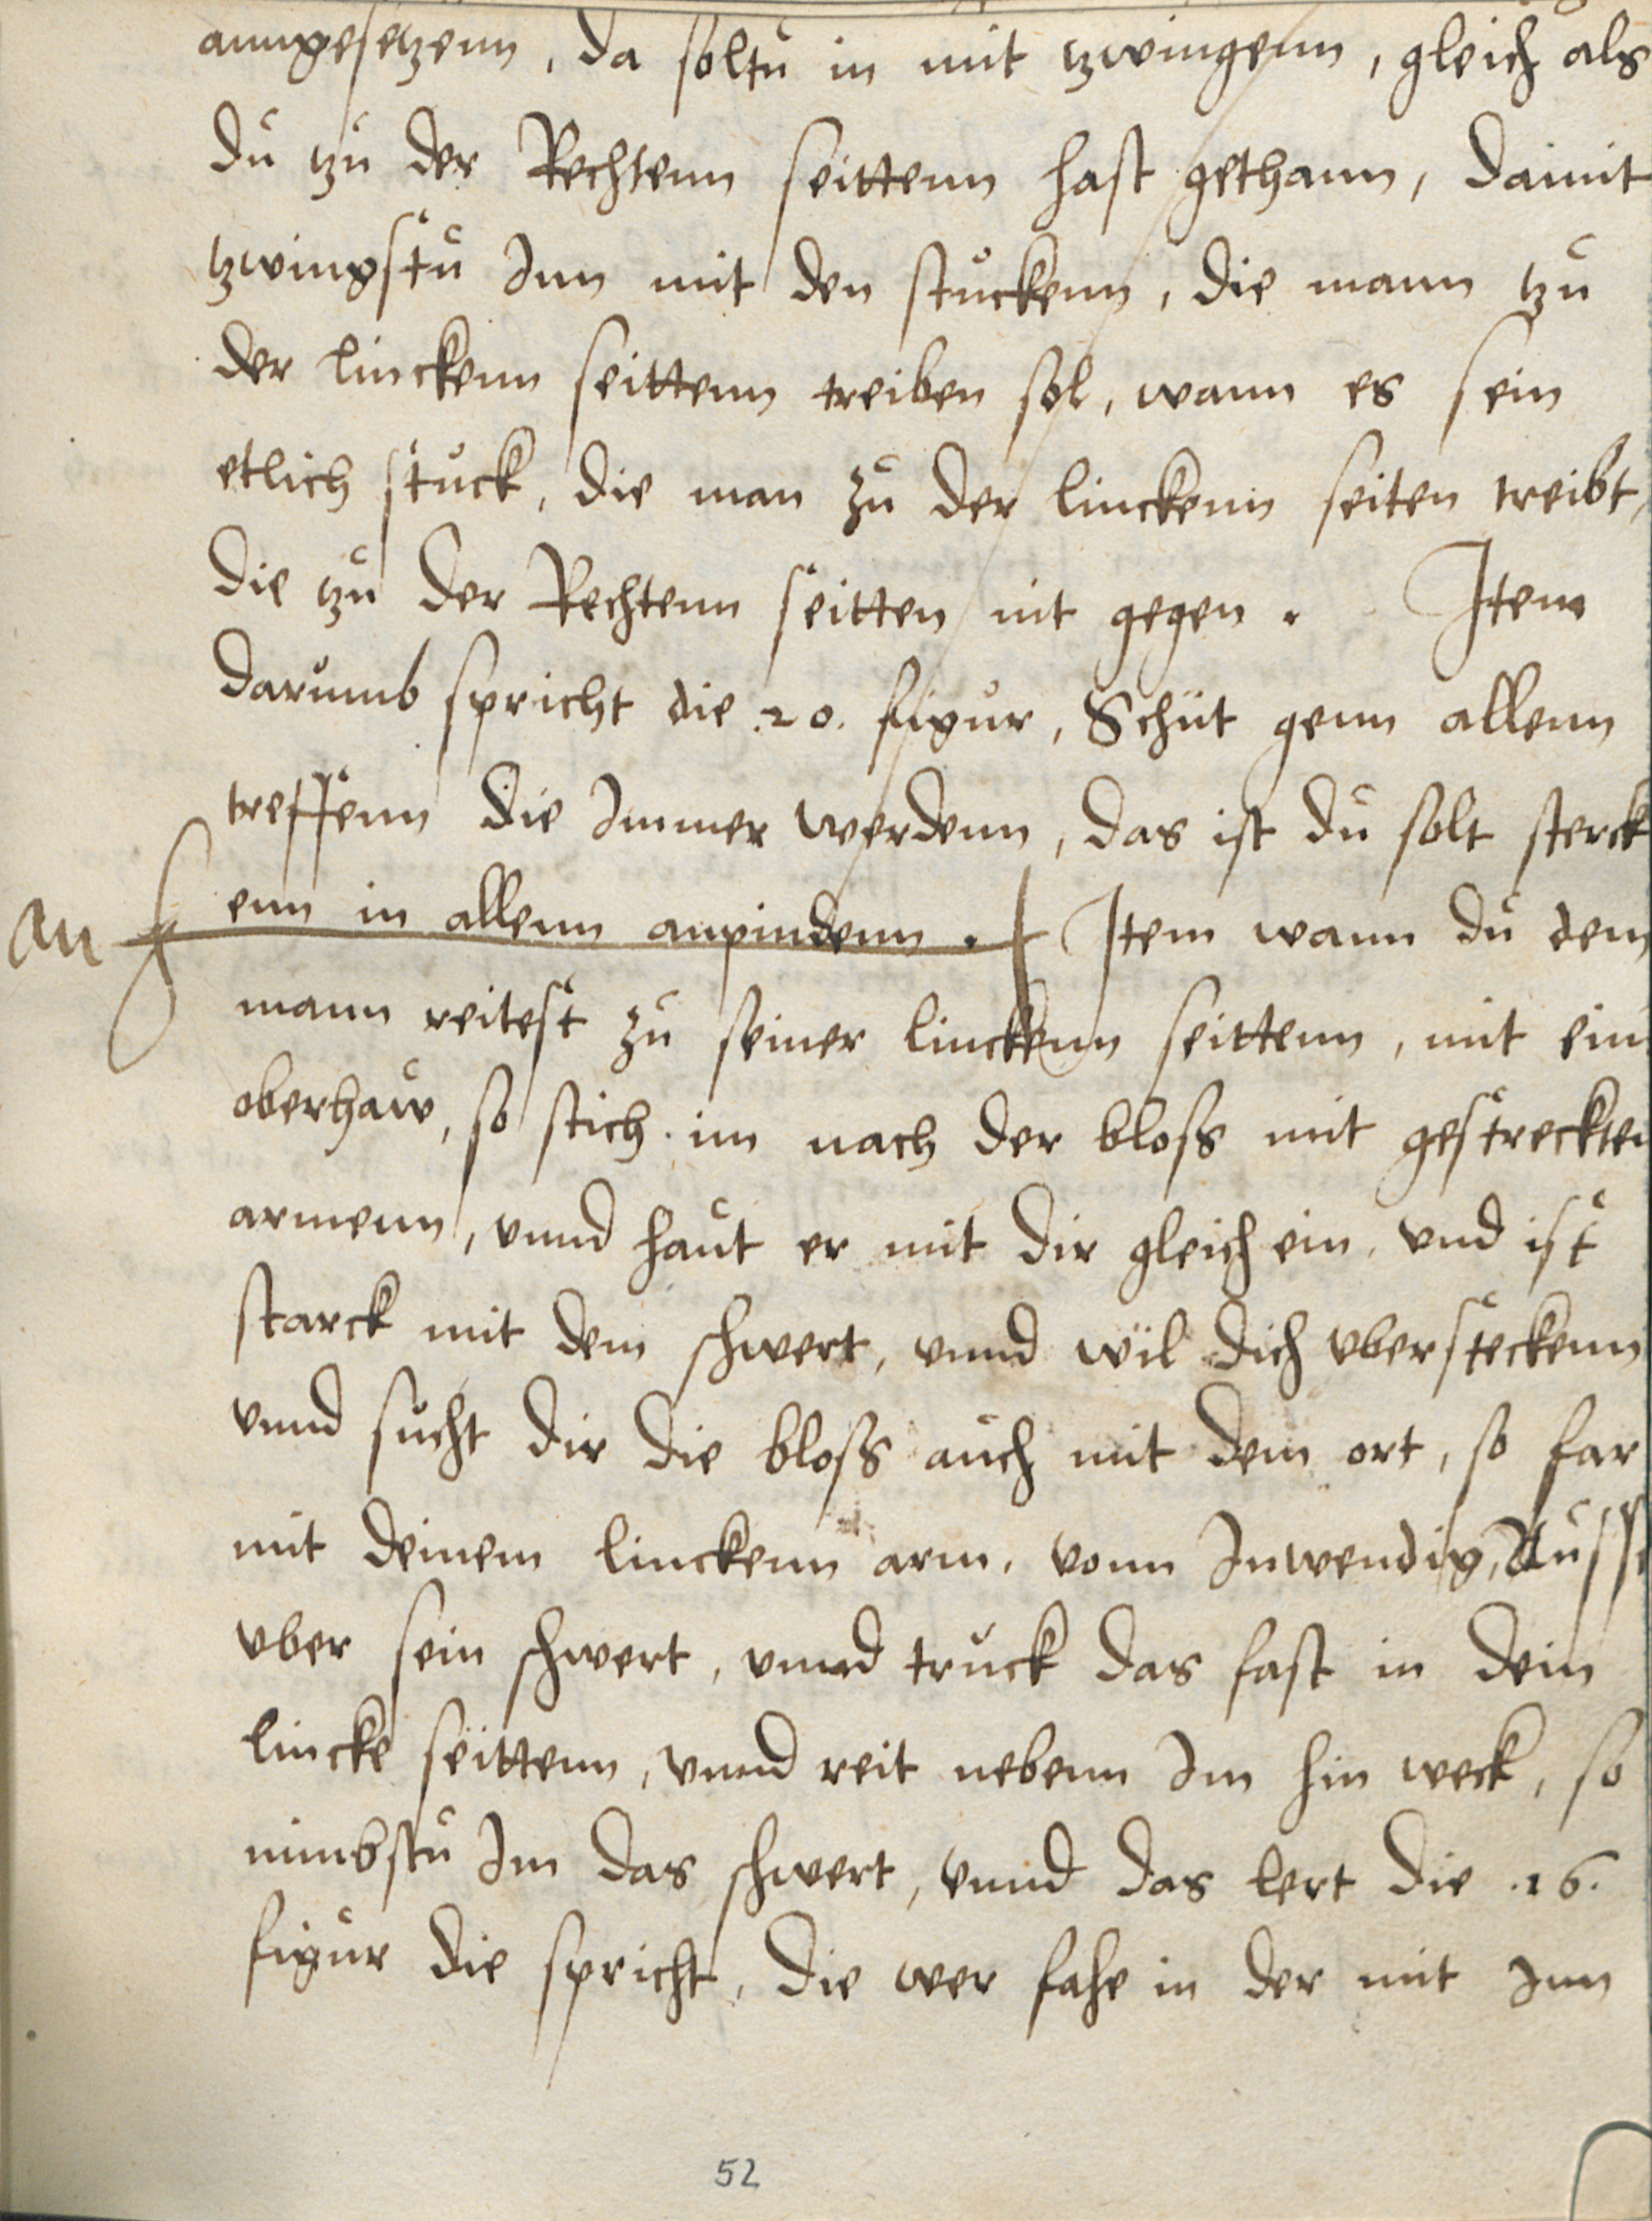 anngesetzenn, da soltu in mit tzwingenn, gleich als
du tzu der Rechtenn seittenn hast gethann, damit
tzwingstu Inn mit den stuckenn, die mann tzu
der linckenn seittenn treiben sol, wann es sein
etlich stuck, die man zu der linckenn seiten treibt,
die tzu der Rechtenn seitten nit gegen. Item
darumb spricht die .20. figur, Schüt genn allenn
treffenn die Immer werdenn, das ist du solt sterck
an enn in allenn anpindenn. Item wann du dem
mann reitest zu seiner linckenn seittenn, mit ein
oberhaw, so stich im nach der bloss mit gestreckten
armenn, vnnd haut er mit dir gleich ein, vnd ist
starck mit dem schwert, vnnd wil dich vbersteckenn
vnnd sucht dir die bloss auch mit dem ort, so far
mit deinem linckenn arm, vonn Inwendig, Auss
vber sein schwert, vnnd truck das fast in dein
lincke seittenn, vnnd reit nebenn Im hin weck, so
nimbstu Im das schwert, vnnd das lert die .16.
figur die spricht, die wer fahe in der mit Inn
52